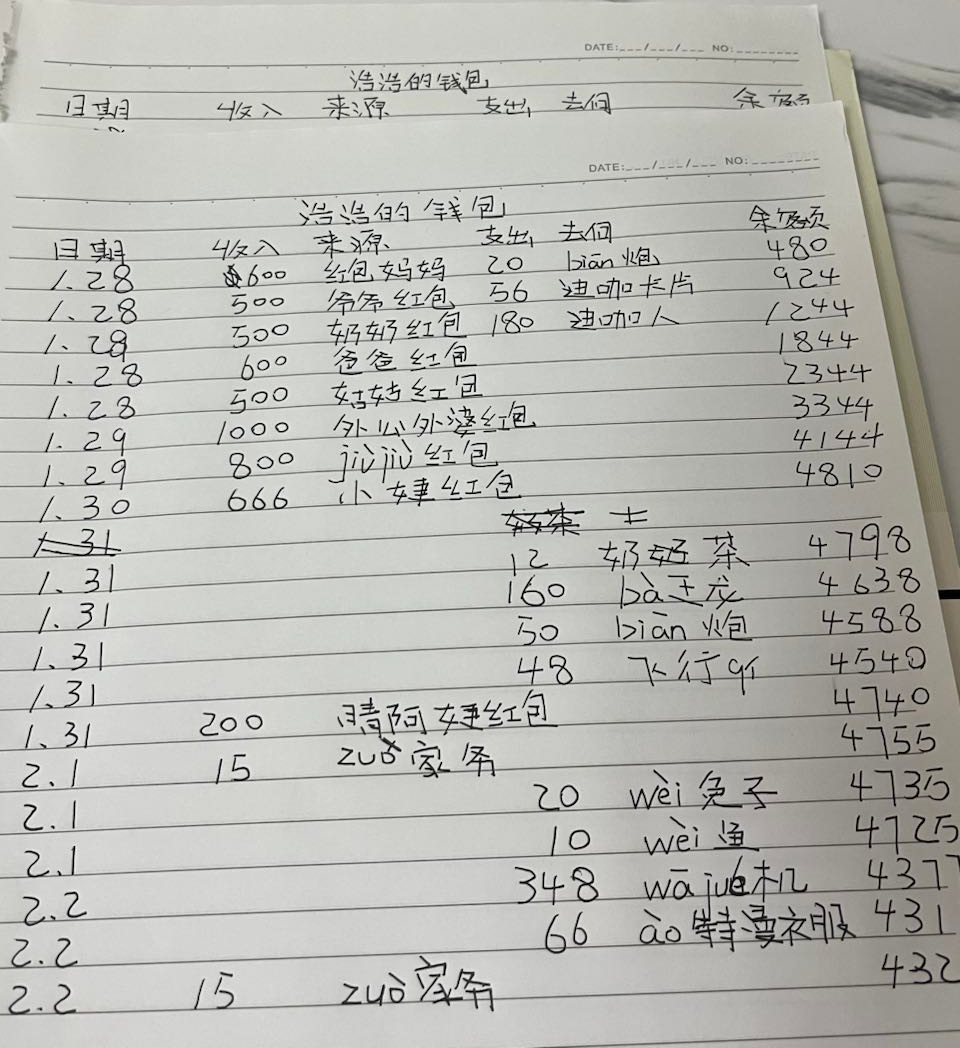 DATE:___/___/___ NO:________
浩浩的钱包
日期 收入 来源 支出 去向 余额
DATE:___/___/___ NO:________
浩浩的钱包
日期 收入 来源 支出 去向 余额
1.28 600 红包妈妈 20 biān炮 480
1.28 500 爷爷红包 56 迪咖卡片 924
1.28 500 奶奶红包 180 迪咖人 1244
1.28 600 爸爸红包 1844
1.28 500 姑姑红包 2344
1.29 1000 外公外婆红包 3344
1.29 800 jiùjiù红包 4144
1.30 666 小婕红包 4810
1.31
1.31 12 奶奶茶 4798
1.31 160 bà王龙 4638
1.31 50 biān炮 4588
1.31 48 飞行qì 4540
1.31 200 晴阿婕红包 4740
2.1 15 zuò家务 4755
2.1 20 wèi兔子 4735
2.1 10 wèi鱼 4725
2.2 348 wājué机 4377
2.2 66 ào特漫衣服 431
2.2 15 zuò家务 432